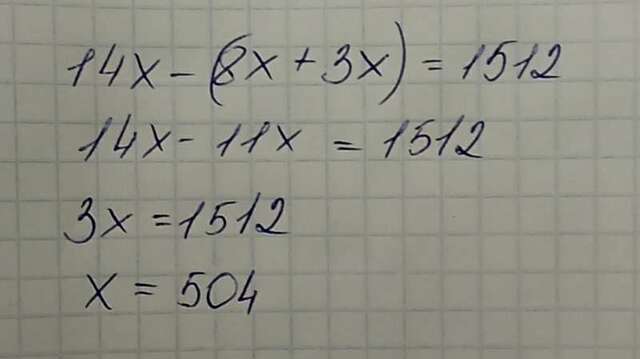 14x - (8x + 3x) = 1512
14x - 11x = 1512
3x = 1512
x = 504